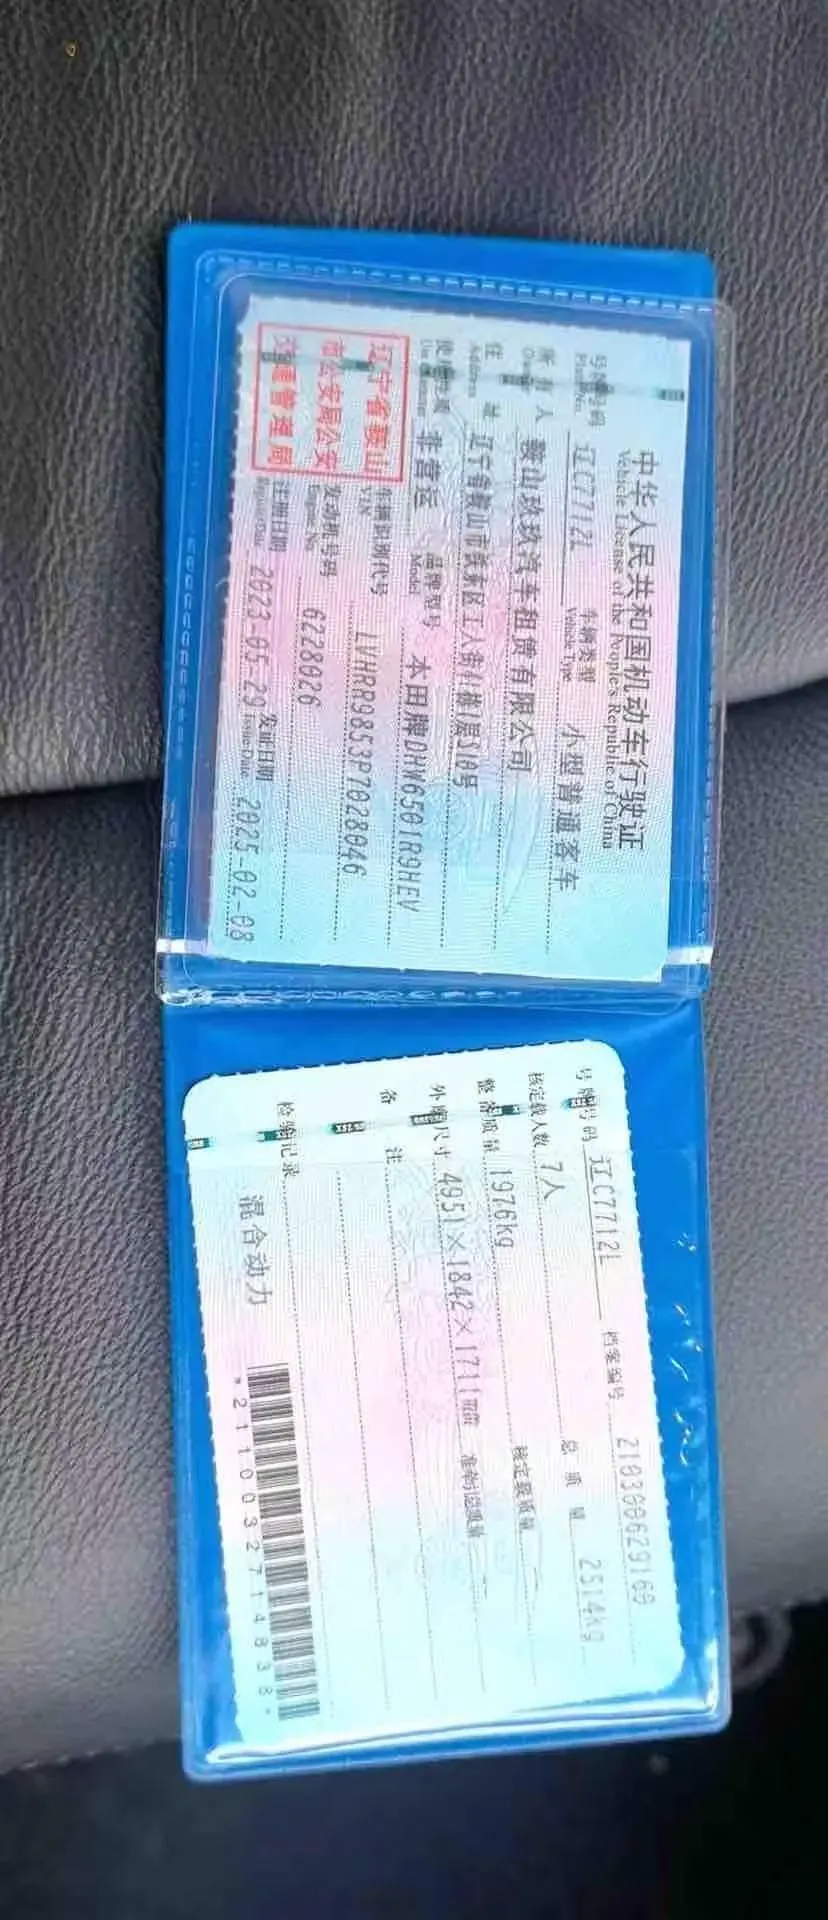 中华人民共和国机动车行驶证
Vehicle License of the People's Republic of China
号牌号码 辽C7712L 车辆类型 小型普通客车
Plate No. Vehicle Type
所有人 鞍山玖玖汽车租赁有限公司
Owner
住址 辽宁省鞍山市铁东区工人街41栋1层S10号
Address
使用性质 非营运 品牌型号 本田牌DHW6501R9HEV
Use Character Model
辽宁省鞍山
市公安局公安
交通管理局
车辆识别代号 LVHRR9853P7028046
VIN
发动机号码 6228026
Engine No.
注册日期 2023-05-29 发证日期 2025-02-08
Register Date Issue Date
号牌号码 辽C7712L 档案编号 210300629160
核定载人数 7人 总质量 2514kg
整备质量 1976kg 核定载质量 --
外廓尺寸 4951×1842×1711mm 准牵引总质量 --
备注
检验记录
混合动力
*2110032714838*